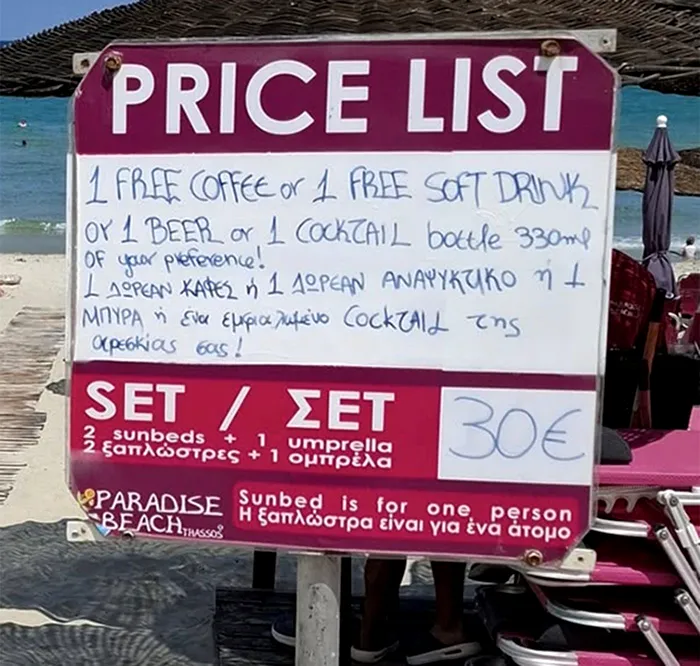 PRICE LIST
1 FREE COFFEE or 1 FREE SOFT DRINK
or 1 BEER or 1 COCKTAIL bottle 330ml
OF your preference!
1 ΔΩΡΕΑΝ ΚΑΦΕΣ ή 1 ΔΩΡΕΑΝ ΑΝΑΨΥΚΤΙΚΟ ή 1
ΜΠΥΡΑ ή ένα εμφιαλωμένο COCKTAIL της
αρεσκίας σας!
SET / ΣΕΤ
2 sunbeds + 1 umprella
2 ξαπλώστρες + 1 ομπρέλα
30€
PARADISE
BEACH THASSOS
Sunbed is for one person
Η ξαπλώστρα είναι για ένα άτομο